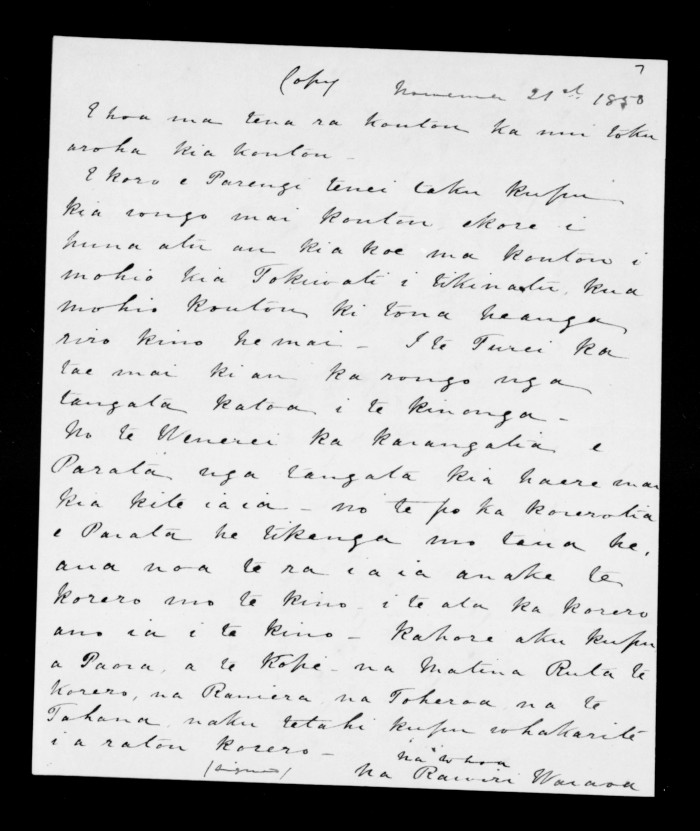 7
Copy
November 21st 1850
E hoa ma tena ra koutou ka nui toku
aroha kia koutou -
E koro e Parengi tenei taku kupu
kia rongo mai koutou ekore i
huna atu au kia koe ma koutou i
mohio kia Tokiwati i tikinatu, kua
mohio koutou ki tona heanga
riro kino he mai - I te Turei ka
tae mai ki au ka rongo nga
tangata katoa i te kinonga -
No te Wenerei ka karangatia e
Parata nga tangata kia haere mai
kia kite iaia - no te po ka korerotia
e Parata he tikanga mo tana he,
ana noa te ra i a ia anake te
korero mo te kino - i te ata ka korero
ano ia i te kino - kahore aku kupu
a Paora, a te Kopi - na Matina Ruta te
korero, na Raniera na Toheroa na te
Tahana naku tetahi kupu whakarite
i a ratou korero -
"na" whoa
(signed) Na Rawiri Waraoa